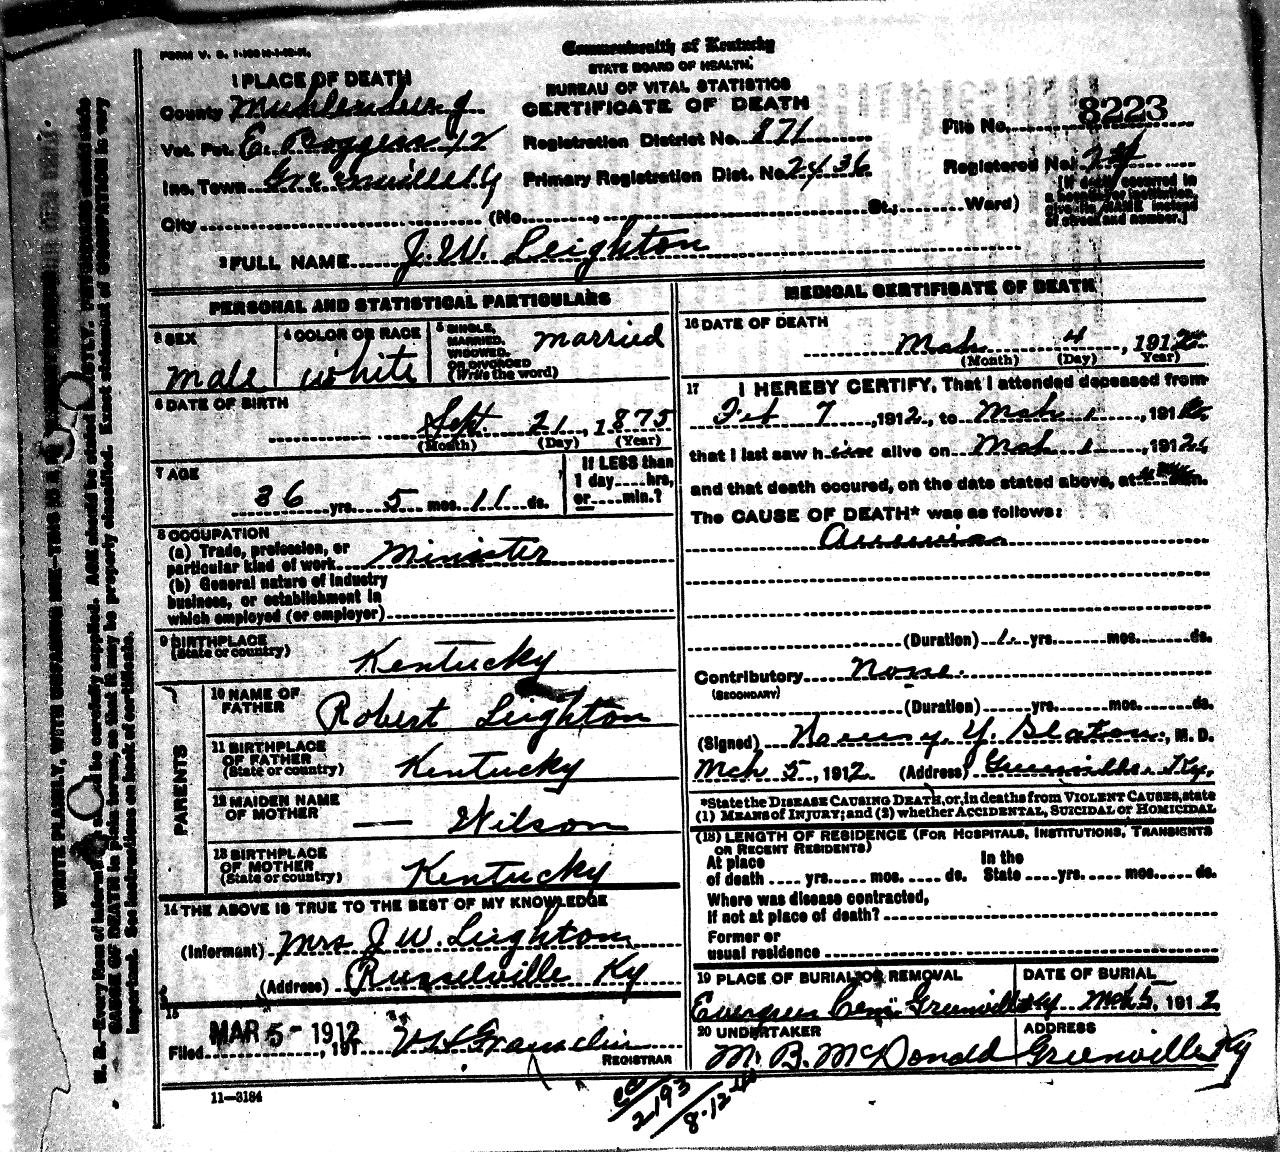 FORM V. S. 1-
Commonwealth of Kentucky
STATE BOARD OF HEALTH.
BUREAU OF VITAL STATISTICS
CERTIFICATE OF DEATH
1 PLACE OF DEATH
County Muhlenberg
Vot. Pct. E. Boggess 12
Inc. Town Greenville Ky
City (No. , St.; Ward)
Registration District No. 871
Primary Registration Dist. No. 2436
File No. 8223
Registered No. 24
[If death occurred in
a hospital or institution,
give its NAME instead
of street and number.]
2 FULL NAME J. W. Leighton
PERSONAL AND STATISTICAL PARTICULARS
3 SEX
male
4 COLOR OR RACE
white
5 SINGLE,
MARRIED,
WIDOWED,
OR DIVORCED
(Write the word)
married
6 DATE OF BIRTH
Sept 21, 1875
(Month) (Day) (Year)
7 AGE
36 yrs. 5 mos. 11 ds.
If LESS than
1 day....hrs,
or....min.?
8 OCCUPATION
(a) Trade, profession, or
particular kind of work Minister
(b) General nature of industry
business, or establishment in
which employed (or employer)
9 BIRTHPLACE
(State or country)
Kentucky
PARENTS
10 NAME OF
FATHER
Robert Leighton
11 BIRTHPLACE
OF FATHER
(State or country)
Kentucky
12 MAIDEN NAME
OF MOTHER
— Wilson
13 BIRTHPLACE
OF MOTHER
(State or country)
Kentucky
14 THE ABOVE IS TRUE TO THE BEST OF MY KNOWLEDGE
(Informant) Mrs J W. Leighton
(Address) Russelville Ky
15
Filed MAR 5- 1912, 191
REGISTRAR
11—3184
MEDICAL CERTIFICATE OF DEATH
16 DATE OF DEATH
Mch 4, 1912
(Month) (Day) Year)
17 I HEREBY CERTIFY, That I attended deceased from
Feb 7, 1912, to Mch 1, 1912
that I last saw him alive on Mch 1, 1912,
and that death occured, on the date stated above, at m.
The CAUSE OF DEATH* was as follows:
Anemia
(Duration) 1 yrs. mos. ds.
Contributory None.
(SECONDARY)
(Duration) yrs. mos. ds.
(Signed) Y. Slaton, M. D.
Mch 5, 1912 (Address) Greenville, Ky.
*State the DISEASE CAUSING DEATH, or, in deaths from VIOLENT CAUSES, state
(1) MEANS OF INJURY; and (2) whether ACCIDENTAL, SUICIDAL or HOMICIDAL
(18) LENGTH OF RESIDENCE (FOR HOSPITALS, INSTITUTIONS, TRANSIENTS
OR RECENT RESIDENTS)
At place
of death .... yrs. .... mos. .... ds.
In the
State .... yrs. .... mos. .... ds.
Where was disease contracted,
If not at place of death?
Former or
usual residence
19 PLACE OF BURIAL OR REMOVAL
Evergreen Cem. Greenville Ky
DATE OF BURIAL
Mch 5, 1912
20 UNDERTAKER
M. B. McDonald
ADDRESS
Greenville Ky
2193
8-12-
WRITE PLAINLY, WITH UNFADING INK—THIS IS A
N. B.—Every item of information should be carefully supplied. AGE should be stated EXACTLY. PHYSICIANS should state
CAUSE OF DEATH in plain terms, so that it may be properly classified. Exact statement of OCCUPATION is very
important. See instructions on back of certificate.